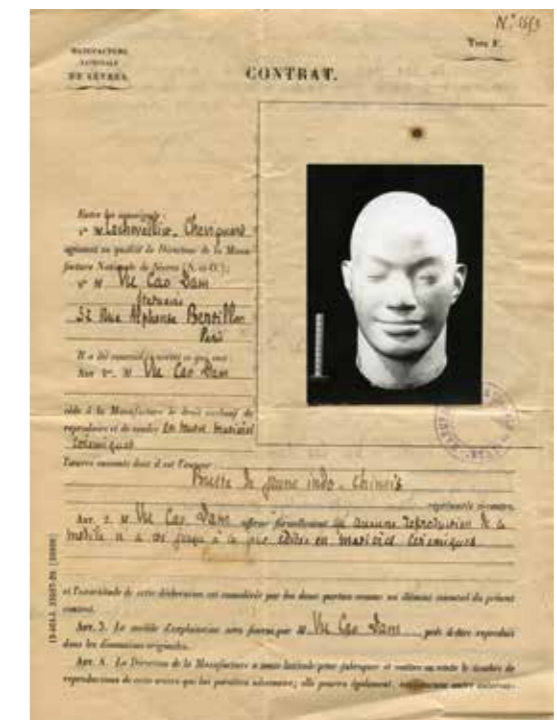 N.º 
Type F.
MANUFACTURE
NATIONALE
DE SÈVRES
CONTRAT.
Entre les soussignés :
1º M. Lechevallier-Chevignard
agissant en qualité de Directeur de la Manu-
facture Nationale de Sèvres (S.-et-O.) ;
2º M Vu Cao Dam
statuaire
32 Rue Alphonse Bertillon
Paris
Il a été convenu et arrêté ce qui suit :
Art. 1er. M. Vu Cao Dam
cède à la Manufacture le droit exclusif de
reproduire et de vendre en toutes matières
céramiques
l'œuvre suivante dont il est l'auteur :
Buste de jeune indo-chinois
représentée ci-contre.
Art. 2. M. Vu Cao Dam affirme formellement qu'aucune reproduction de ce
modèle n'a été jusqu'à ce jour éditée en matières céramiques
et l'exactitude de cette déclaration est considérée par les deux parties comme un élément essentiel du présent
contrat.
Art. 3. Le modèle d'exploitation sera fourni par M. Vu Cao Dam prêt à être reproduit
dans les dimensions originales.
Art. 4. La Direction de la Manufacture a toute latitude pour fabriquer et mettre en vente le nombre de
reproductions de cette œuvre que lui paraîtra nécessaire; elle pourra également,